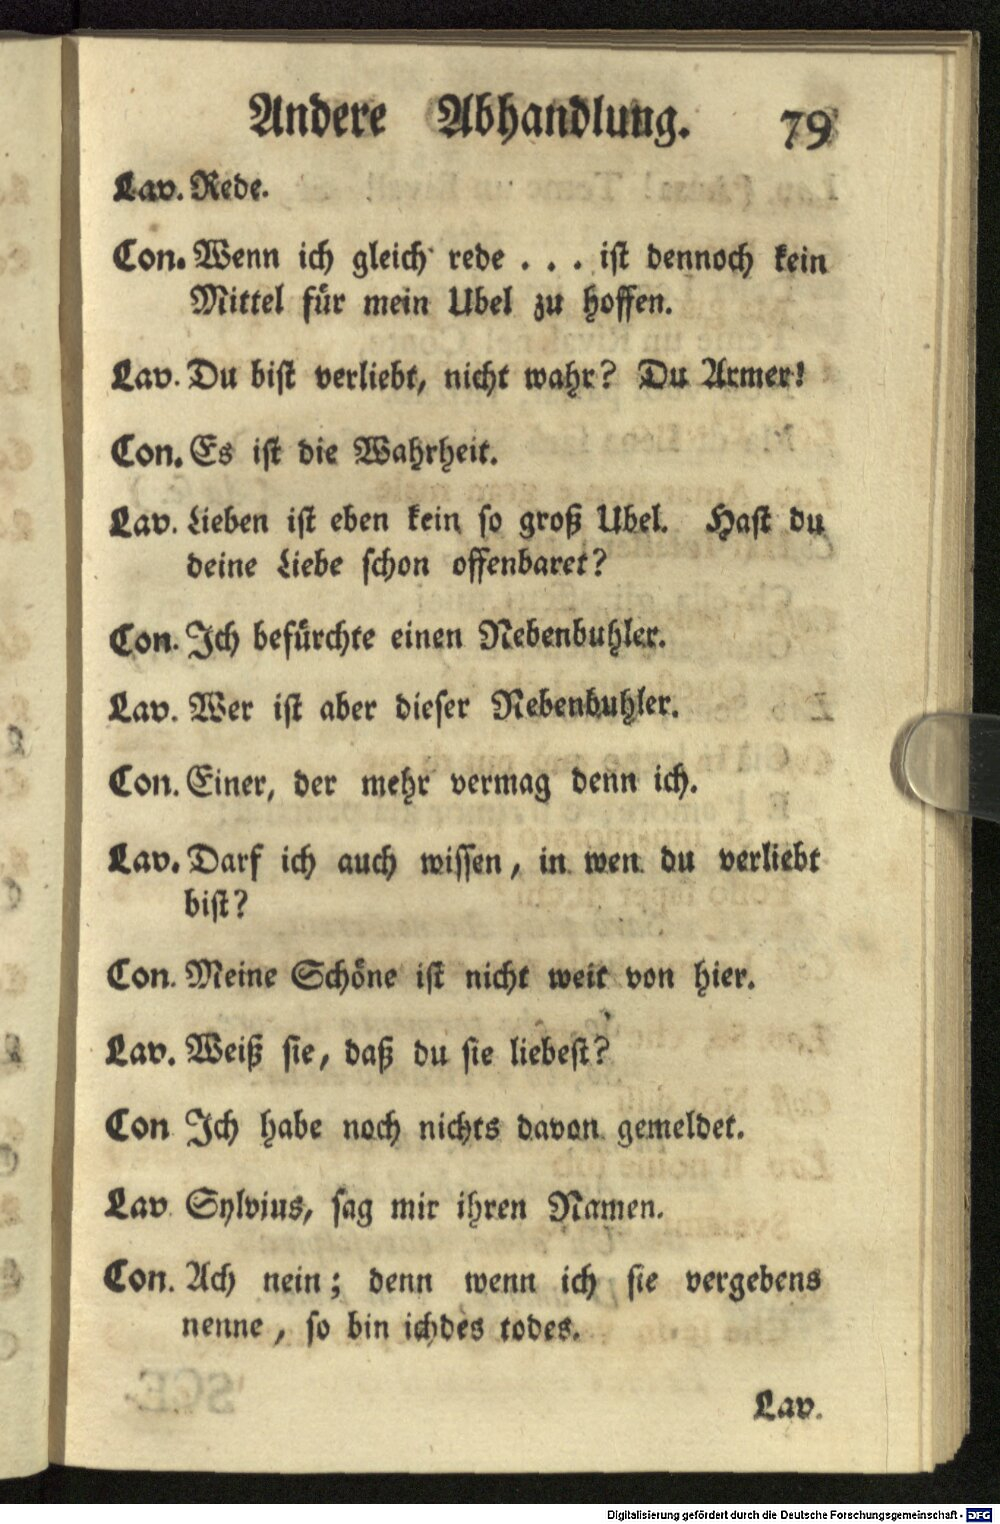 Andere Abhandlung. 79
Lav. Rede.
Con. Wenn ich gleich rede . . . ist dennoch kein
Mittel für mein Ubel zu hoffen.
Lav. Du bist verliebt, nicht wahr? Du Armer!
Con. Es ist die Wahrheit.
Lav. Lieben ist eben kein so groß Ubel. Hast du
deine Liebe schon offenbaret?
Con. Ich befürchte einen Nebenbuhler.
Lav. Wer ist aber dieser Nebenbuhler.
Con. Einer, der mehr vermag denn ich.
Lav. Darf ich auch wissen, in wen du verliebt
bist?
Con. Meine Schöne ist nicht weit von hier.
Lav. Weiß sie, daß du sie liebest?
Con Ich habe noch nichts davon gemeldet.
Lav Sylvius, sag mir ihren Namen.
Con. Ach nein; denn wenn ich sie vergebens
nenne, so bin ichdes todes.
Lav.
Digitalisierung gefördert durch die Deutsche Forschungsgemeinschaft - DFG